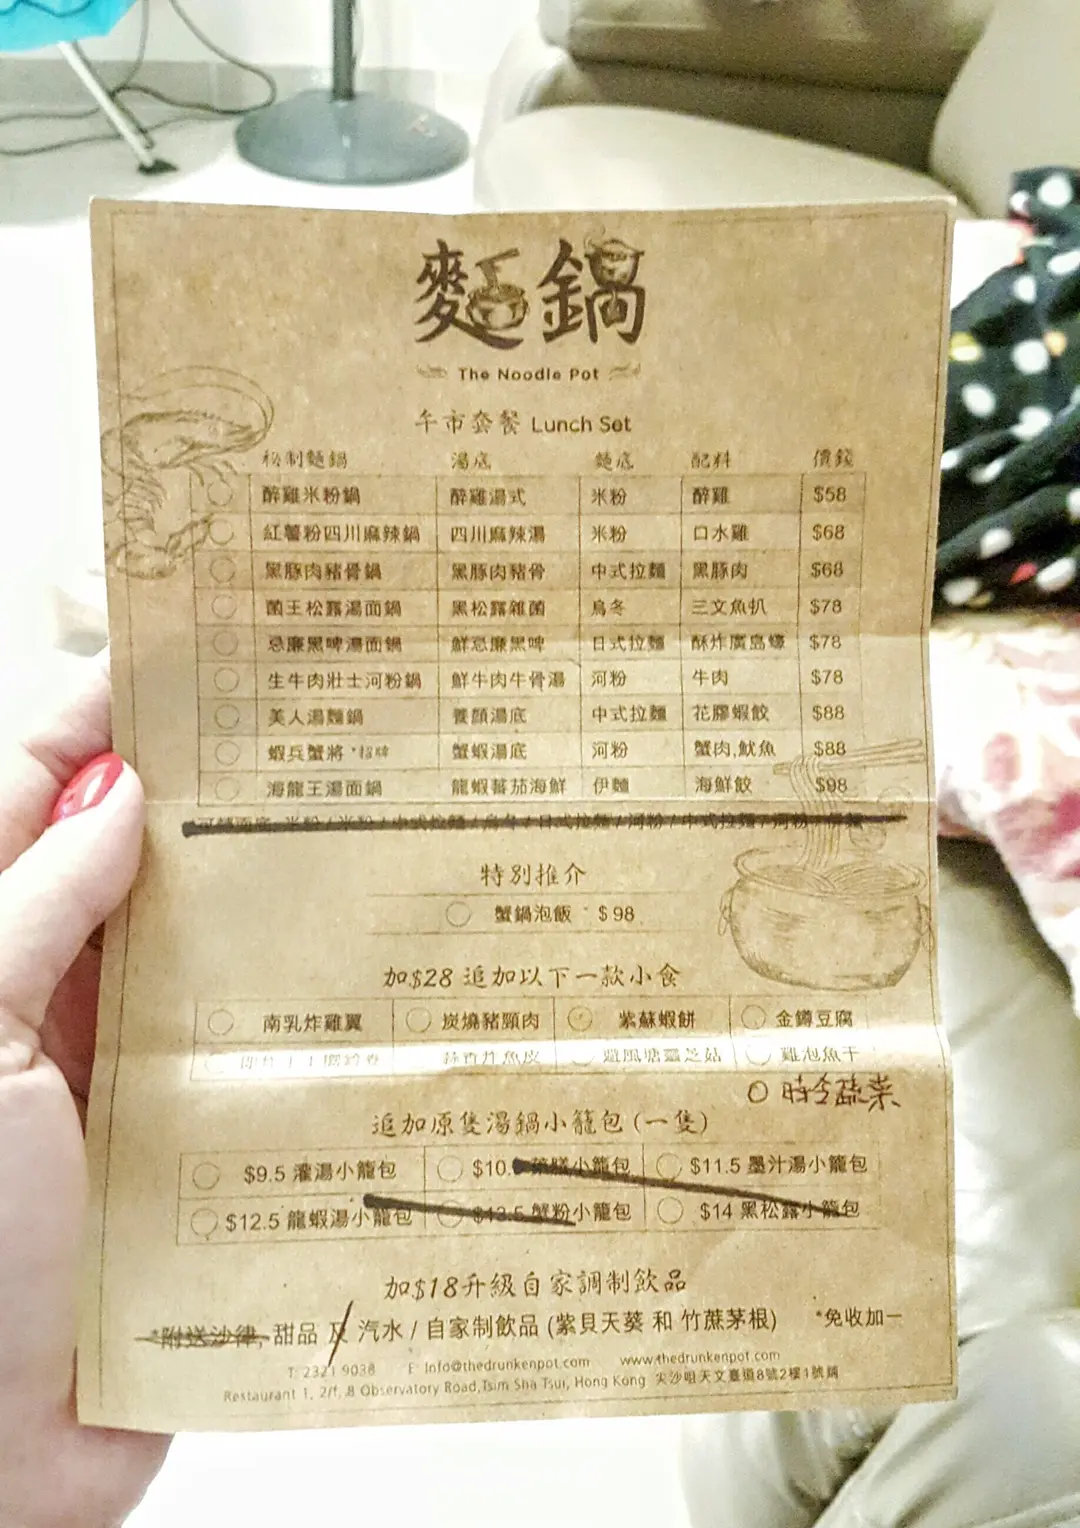 麵鍋
The Noodle Pot
午市套餐 Lunch Set
秘制麵鍋 湯底 麵底 配料 價錢
醉雞米粉鍋 醉雞湯式 米粉 醉雞 $58
紅薯粉四川麻辣鍋 四川麻辣湯 米粉 口水雞 $68
黑豚肉豬骨鍋 黑豚肉豬骨 中式拉麵 黑豚肉 $68
菌王松露湯面鍋 黑松露雜菌 烏冬 三文魚扒 $78
忌廉黑啤湯面鍋 鮮忌廉黑啤 日式拉麵 酥炸廣島蠔 $78
生牛肉壯士河粉鍋 鮮牛肉牛骨湯 河粉 牛肉 $78
美人湯麵鍋 養顏湯底 中式拉麵 花膠蝦餃 $88
蝦兵蟹將 *招牌 蟹蝦湯底 河粉 蟹肉,魷魚 $88
海龍王湯面鍋 龍蝦蕃茄海鮮 伊麵 海鮮餃 $98
米粉 / 米粉 / 中式拉麵 / 烏冬 / 日式拉麵 / 河粉 / 中式拉麵 / 河粉
特別推介
蟹鍋泡飯 $98
加$28 追加以下一款小食
南乳炸雞翼 炭燒豬頸肉 紫蘇蝦餅 金鐏豆腐
炸魚皮 避風塘靈芝菇 雞泡魚干
時令蔬菜
追加原隻湯鍋小籠包 (一隻)
$9.5 灌湯小籠包 $10. 藥膳小籠包 $11.5 墨汁湯小籠包
$12.5 龍蝦湯小籠包 $13.5 蟹粉小籠包 $14 黑松露小籠包
加$18升級自家調制飲品
*附送沙律, 甜品 及 汽水 / 自家制飲品 (紫貝天葵 和 竹蔗茅根) *免收加一
T: 2321 9038 E: Info@thedrunkenpot.com www.thedrunkenpot.com
Restaurant 1, 2/f, 8 Observatory Road,Tsim Sha Tsui, Hong Kong 尖沙咀天文臺道8號2樓1號鋪